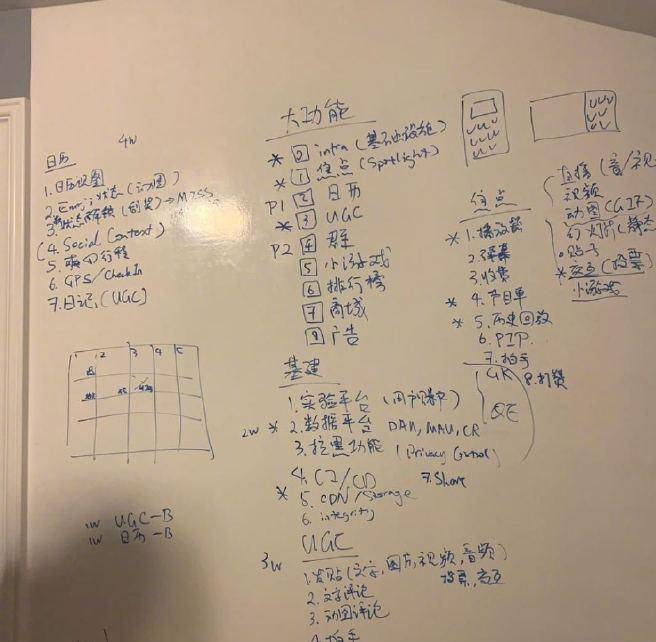 4W
日历
1. 日历视图
2. Emoji 状态 (动图)
4. Social Context)
6. GPS/Check In
7. 日记 (UGC)
1 2 3 4 5
1W UGC-B
1W 日历-B
大功能
* 0 infra (基础设施)
* 1 焦点 (Spotlight)
P1 2 日历
* 3 UGC
P2 4 群
5 小游戏
6 排行榜
7 商城
8 广告
基建
1. 实验平台 (用户
2W * 2. 数据平台 DAU, MAU, CR
3. 拉黑功能 (Privacy Control)
4. CI/CD 7. Share
* 5. CDN/Storage
6. integrity
3W UGC
1. 发贴 (文字, 图片, 视频, 音频)
投票,
2. 文字评论
3. 动图评论
4. 拍手
焦点
* 1. 播放
2. 弹幕
3. 收费
* 4. 节目单
* 5. 历史回放
6. PIP...
7. 拍手
8. 打赏
GK
QE
直播 (音/视
视频
动图 (GIF)
幻灯片 (静态
贴子
* 交互 (投票)
小游戏